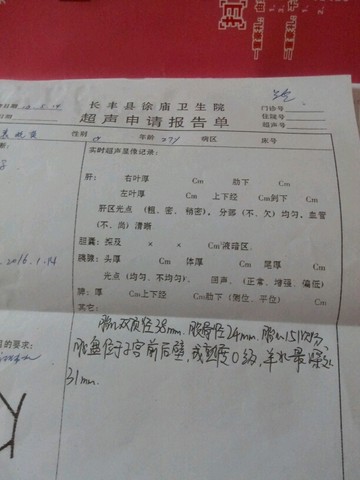 长丰县徐庙卫生院
门诊号
超声申请报告单
住院号
超声号
性别 年龄 27y 病区 床号
实时超声显像记录:
肝: 右叶厚 Cm 肋下 Cm
左叶厚 Cm 上下经 Cm剑下 Cm
肝区光点 (粗、密、稍密), 分部 (不、欠) 均匀, 血管
(不、尚) 清晰
胆囊: 探及 × × Cm³液暗区.
2016.1.14
胰腺: 头厚 Cm 体厚 Cm 尾厚 Cm
光点 (均匀、不均匀). 回声. (正常、增强、偏低)
脾: 厚 Cm上下经 Cm肋下 (侧位、平位) Cm
其它:
的要求:
胎儿双顶径38mm. 股骨径24mm. 胎心151次/分,
胎盘位于子宫前后壁, 成熟度0级, 羊水最深处
31mm.